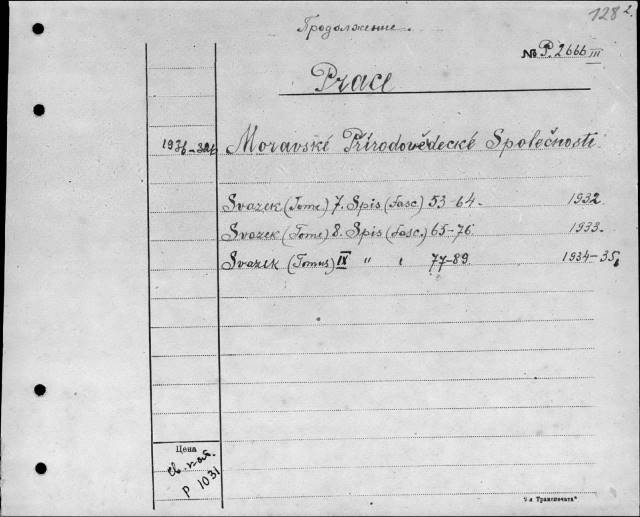 128 2.
Продолжение.
№ P. 2666 III
Prace
Moravské Přírodovědecké Společnosti.
Svazek (Tome) 7. Spis (Fasc.) 53-64. 1932
Svazek (Tome) 8. Spis (Fasc.) 65-76. 1933.
Svazek (Tomus) IX " " 77-89. 1934-35
Цена
P 1031
"Транспечать"